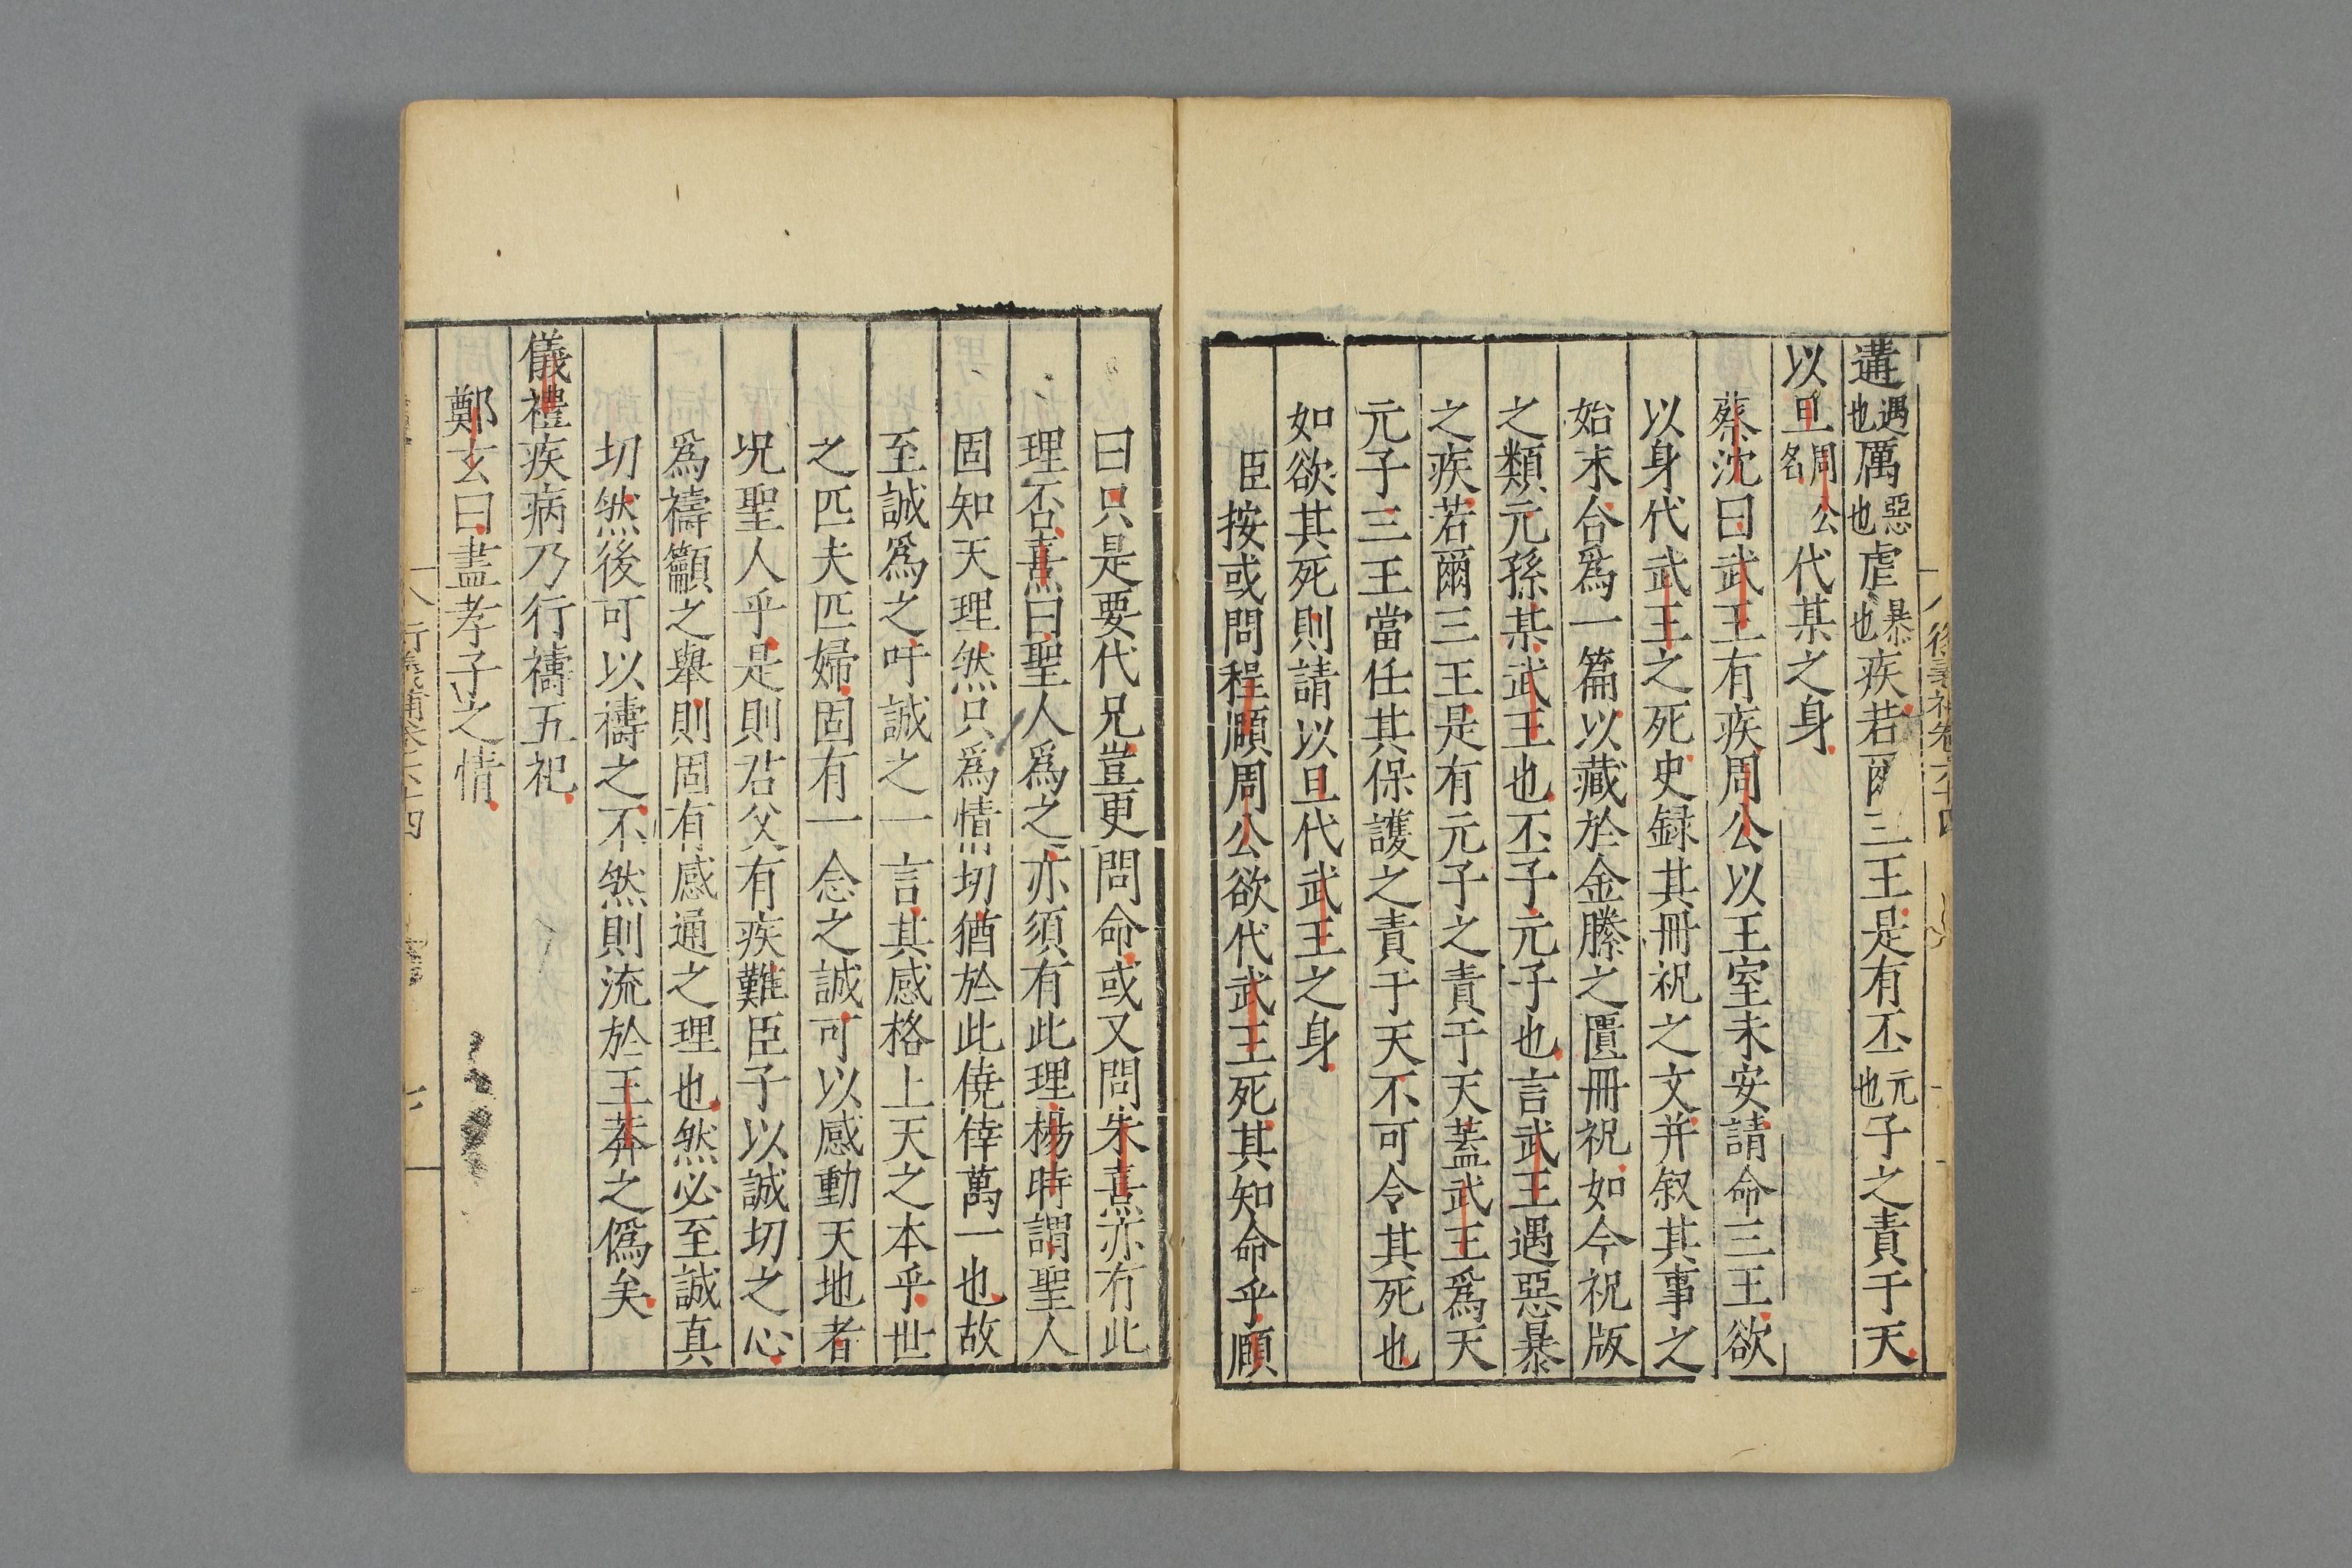 遘遇也厲惡也虐暴也疾若爾三王是有丕元也子之責于天
以旦周公名代某之身
蔡沈曰武王有疾周公以王室未安請命三王欲
以身代武王之死史録其冊祝之文并叙其事之
始末合爲一篇以藏於金縢之匱冊祝如今祝版
之類元孫某武王也丕子元子也言武王遇惡暴
之疾若爾三王是有元子之責于天蓋武王爲天
元子三王當任其保護之責于天不可令其死也
如欲其死則請以旦代武王之身
臣按或問程頤周公欲代武王死其知命乎頤
曰只是要代兄豈更問命或又問朱熹亦有此
理否熹曰聖人爲之亦須有此理楊時謂聖人
固知天理然只爲情切猶於此僥倖萬一也故
至誠爲之吁誠之一言其感格上天之本乎世
之匹夫匹婦固有一念之誠可以感動天地者
况聖人乎是則君父有疾難臣子以誠切之心
爲禱籲之舉則固有感通之理也然必至誠真
切然後可以禱之不然則流於王莽之僞矣
儀禮疾病乃行禱五祀
鄭玄曰盡孝子之情